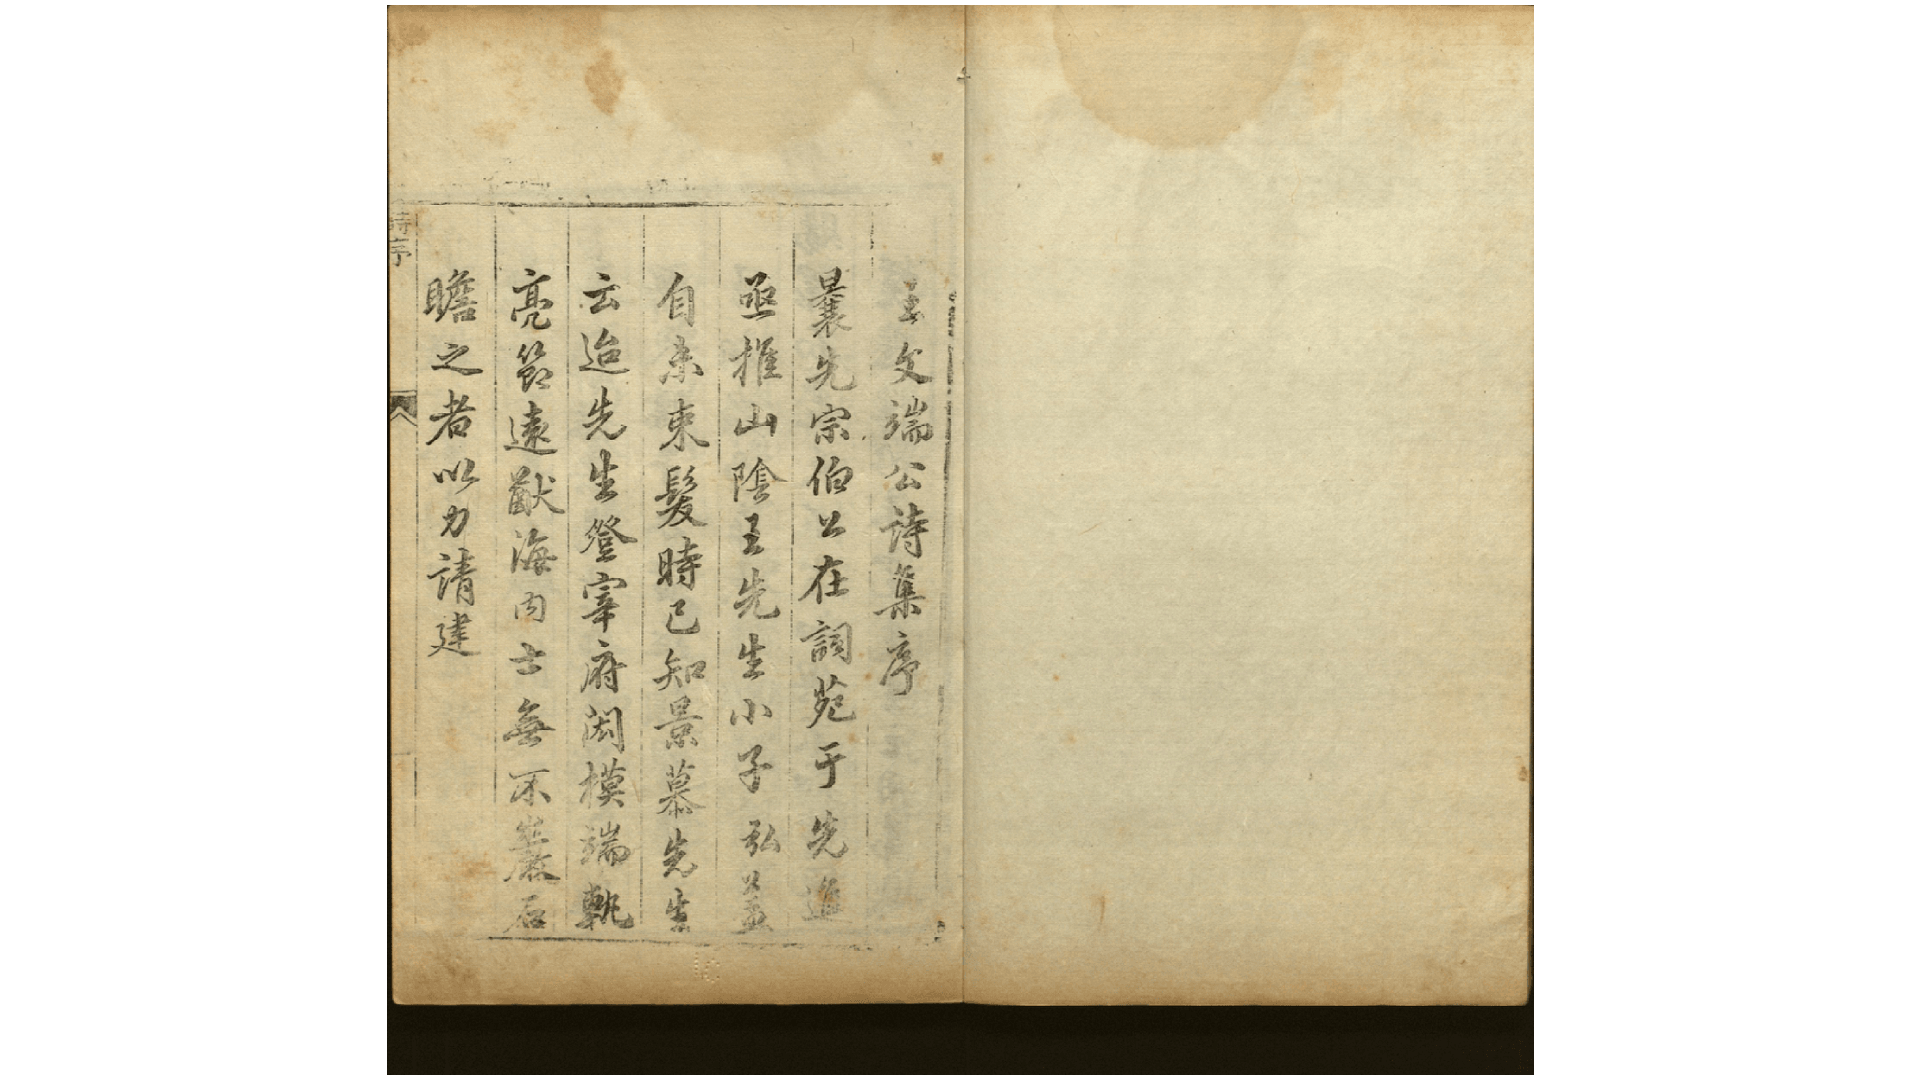 王文端公詩集序
曩先宗伯公在詞苑于先進
亟推山陰王先生小子弘蓋
自未束髮時已知景慕先生
云迨先生登宰府閎模端軌
亮節遠猷海内士無不巖石
瞻之者以力請建
詩序